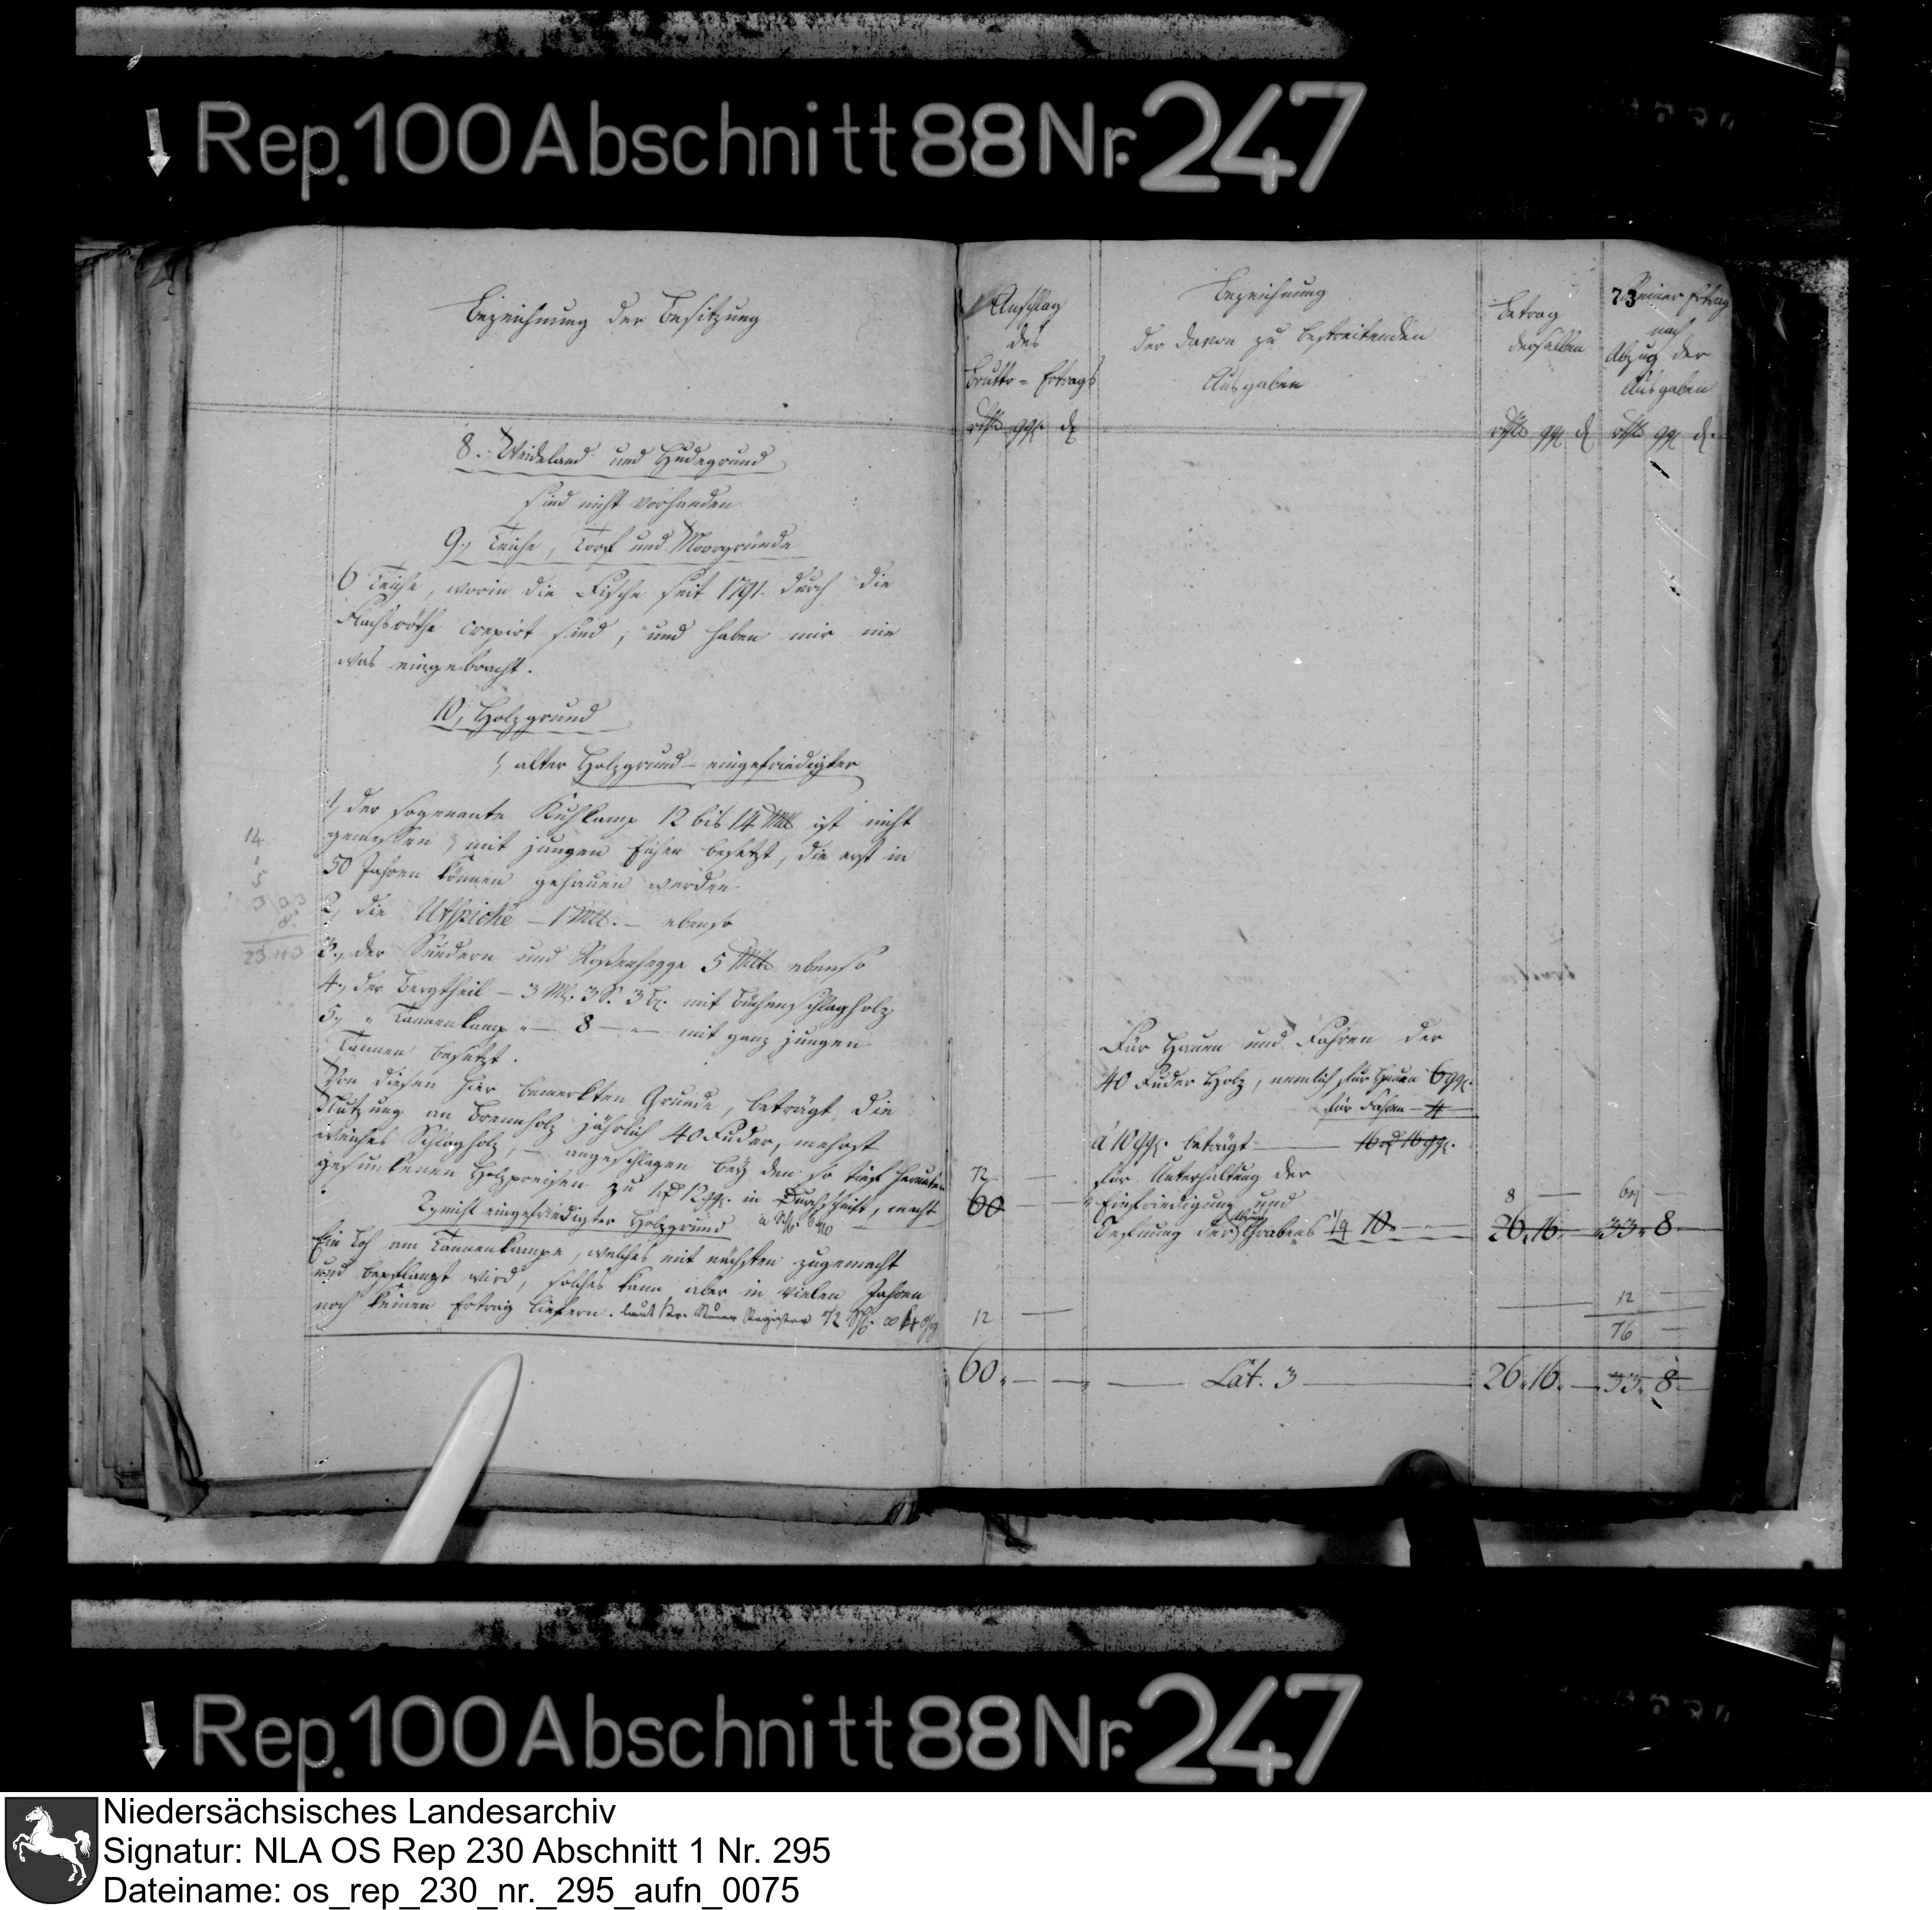 Rep. 100 Abschnitt 88 Nr. 247
Bezeichnung der Besitzung
8. Weideland und Hudegrund
sind nicht vorhanden
9., Teiche, Torf und Moorgründe
6 Teiche, worin die Fische seit 1791. durch die
Flachsröthe crepirt sind, und haben mir nie
was eingebracht.
10, Holzgrund
alter Holzgrund – eingefriedigter
1, der sogenante Kuhkamp 12 bis 14 Mltt ist nicht
gemessen, mit jungen Eichen besetzt, die erst in
50 Jahren können gehauen werden
2, die – 1 Mltt. – ebenso
3., der Sündern und 5 Mltt ebenso
4., der Bergtheil – 3 M. 3 S. 3 B. mit Buchenschlagholz
5., " Tannenkamp " – 8 – " – mit ganz jungen
Tannen besetzt.
Von diesen hier bemerkten Grunde, beträgt die
Nutzung an Brennholz jährlich 40 Fuder, mehrst
weiches Schlagholz, – angeschlagen bey den so tief herunter
gesunkenen Holzpreisen zu 1 rt 12 ggr. in Durchschnitt, macht
2, nicht eingefriedigter Holzgrund
Ein Loh am Tannenkampe, welches mit nächsten zugemacht
und bepflanzt wird, solches kann aber in vielen Jahren
noch keinen Ertrag liefern. laut
14.
1
5
3 03
8.
Anschlag
des
Brutto = Ertrags
rthlr ggr. d
72
60
12
60. – –
Bezeichnung
der davon zu bestreitenden
Ausgaben
Für Hauen und Fahren der
40 Fuder Holz, nemlich für Hauen 6 ggr.
für Fahren – 4 –
á 10 ggr. beträgt – 16 rt 16 ggr.
für Unterhaltung der
Einfriedigung und
der Grabens 10. – "
Lat. 3
Betrag
derselben
rthlr ggr d
8 –
26. 16.
26. 16.
73
Reiner Ertrag
nach
Abzug der
Ausgaben
rthlr ggr d.
33. 8.
12
76
33. 8.
Rep. 100 Abschnitt 88 Nr. 247
Niedersächsisches Landesarchiv
Signatur: NLA OS Rep 230 Abschnitt 1 Nr. 295
Dateiname: os_rep_230_nr._295_aufn_0075